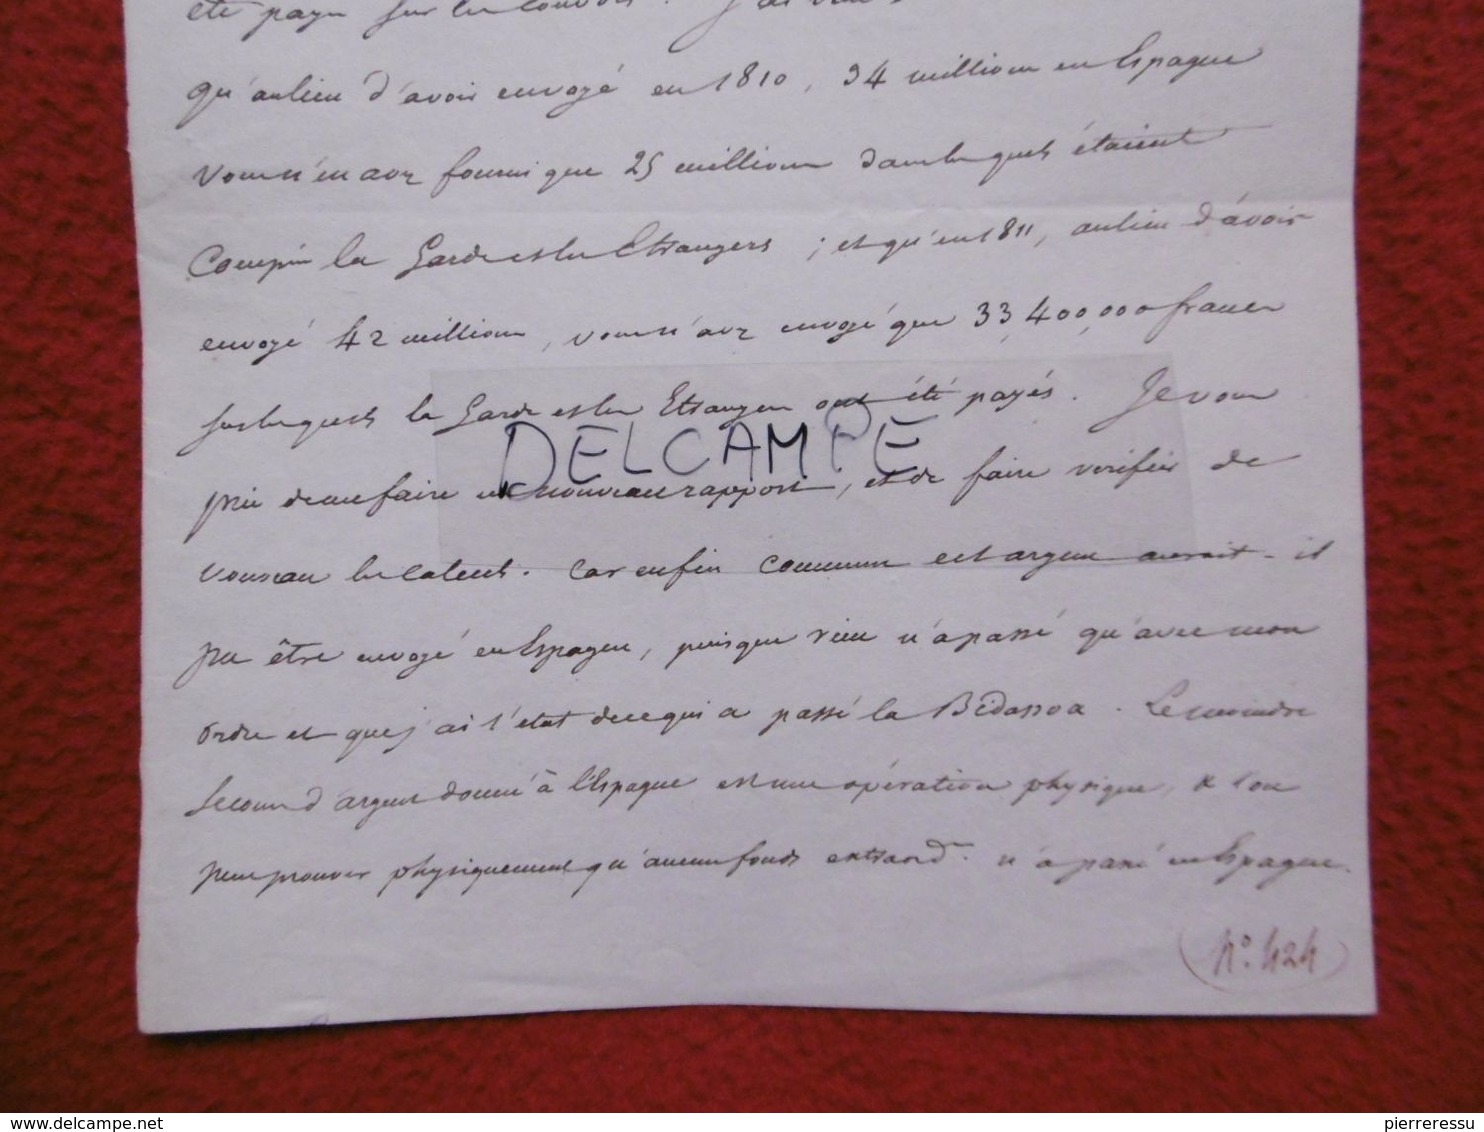 été payée sur les convois. J'ai vu
qu'au lieu d'avoir envoyé en 1810, 34 millions en Espagne
vous n'en avez fourni que 25 millions dans lesquels étaient
compris la Garde et les Etrangers ; et qu'en 1811, au lieu d'avoir
envoyé 42 millions, vous n'avez envoyé que 33,400,000 francs
sur lesquels la Garde et les Etrangers ont été payés. Je vous
prie de me faire un nouveau rapport, et de faire vérifier de
nouveau les calculs. Car enfin comment cet argent aurait-il
pu être envoyé en Espagne, puisque rien n'a passé qu'avec mon
ordre et que j'ai l'état de ce qui a passé la Bidassoa. Le moindre
secours d'argent donné à l'Espagne est une opération physique, & l'on
peut prouver physiquement qu'aucun fonds extraord. n'a passé en Espagne.
(N° 424)
DELCAMPE
delcampe.net
pierreressu